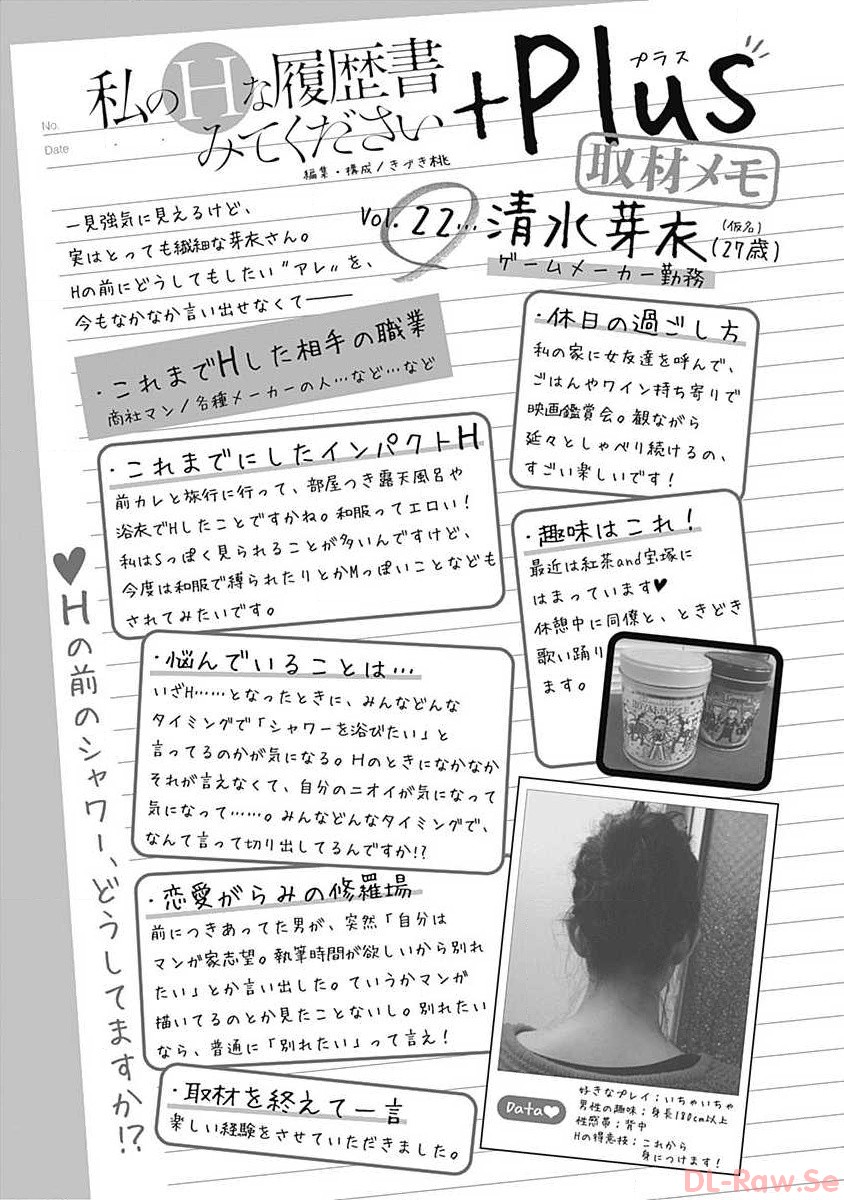 No.
Date
私のHな履歴書
みてください
+Plus
プラス
編集・構成/きづき桃
取材メモ
一見強気に見えるけど、
実はとっても繊細な芽衣さん。
Hの前にどうしてもしたい〝アレ〟を、
今もなかなか言い出せなくて——
Vol. 22… 清水芽衣(仮名)(27歳)
ゲームメーカー勤務
・これまでHした相手の職業
商社マン/各種メーカーの人…など…など
・休日の過ごし方
私の家に女友達を呼んで、
ごはんやワイン持ち寄りで
映画鑑賞会。観ながら
延々としゃべり続けるの、
すごい楽しいです!
・これまでにしたインパクトH
前カレと旅行に行って、部屋つき露天風呂や
浴衣でHしたことですかね。和服ってエロい!
私はSっぽく見られることが多いんですけど、
今度は和服で縛られたりとかMっぽいことなども
されてみたいです。
・趣味はこれ!
最近は紅茶and宝塚に
はまっています♥
休憩中に同僚と、ときどき
歌い踊り
ます。
♥Hの前のシャワー、どうしてますか!?
・悩んでいることは…
いざH……となったときに、みんなどんな
タイミングで「シャワーを浴びたい」と
言ってるのかが気になる。Hのときになかなか
それが言えなくて、自分のニオイが気になって
気になって……。みんなどんなタイミングで、
なんて言って切り出してるんですか!?
・恋愛がらみの修羅場
前につきあってた男が、突然「自分は
マンガ家志望。執筆時間が欲しいから別れ
たい」とか言い出した。ていうかマンガ
描いてるのとか見たことないし。別れたい
なら、普通に「別れたい」って言え!
・取材を終えて一言
楽しい経験をさせていただきました。
Data♥
好きなプレイ:いちゃいちゃ
男性の趣味:身長180cm以上
性感帯:背中
Hの得意技:これから
身につけます!
DL-Raw.Se